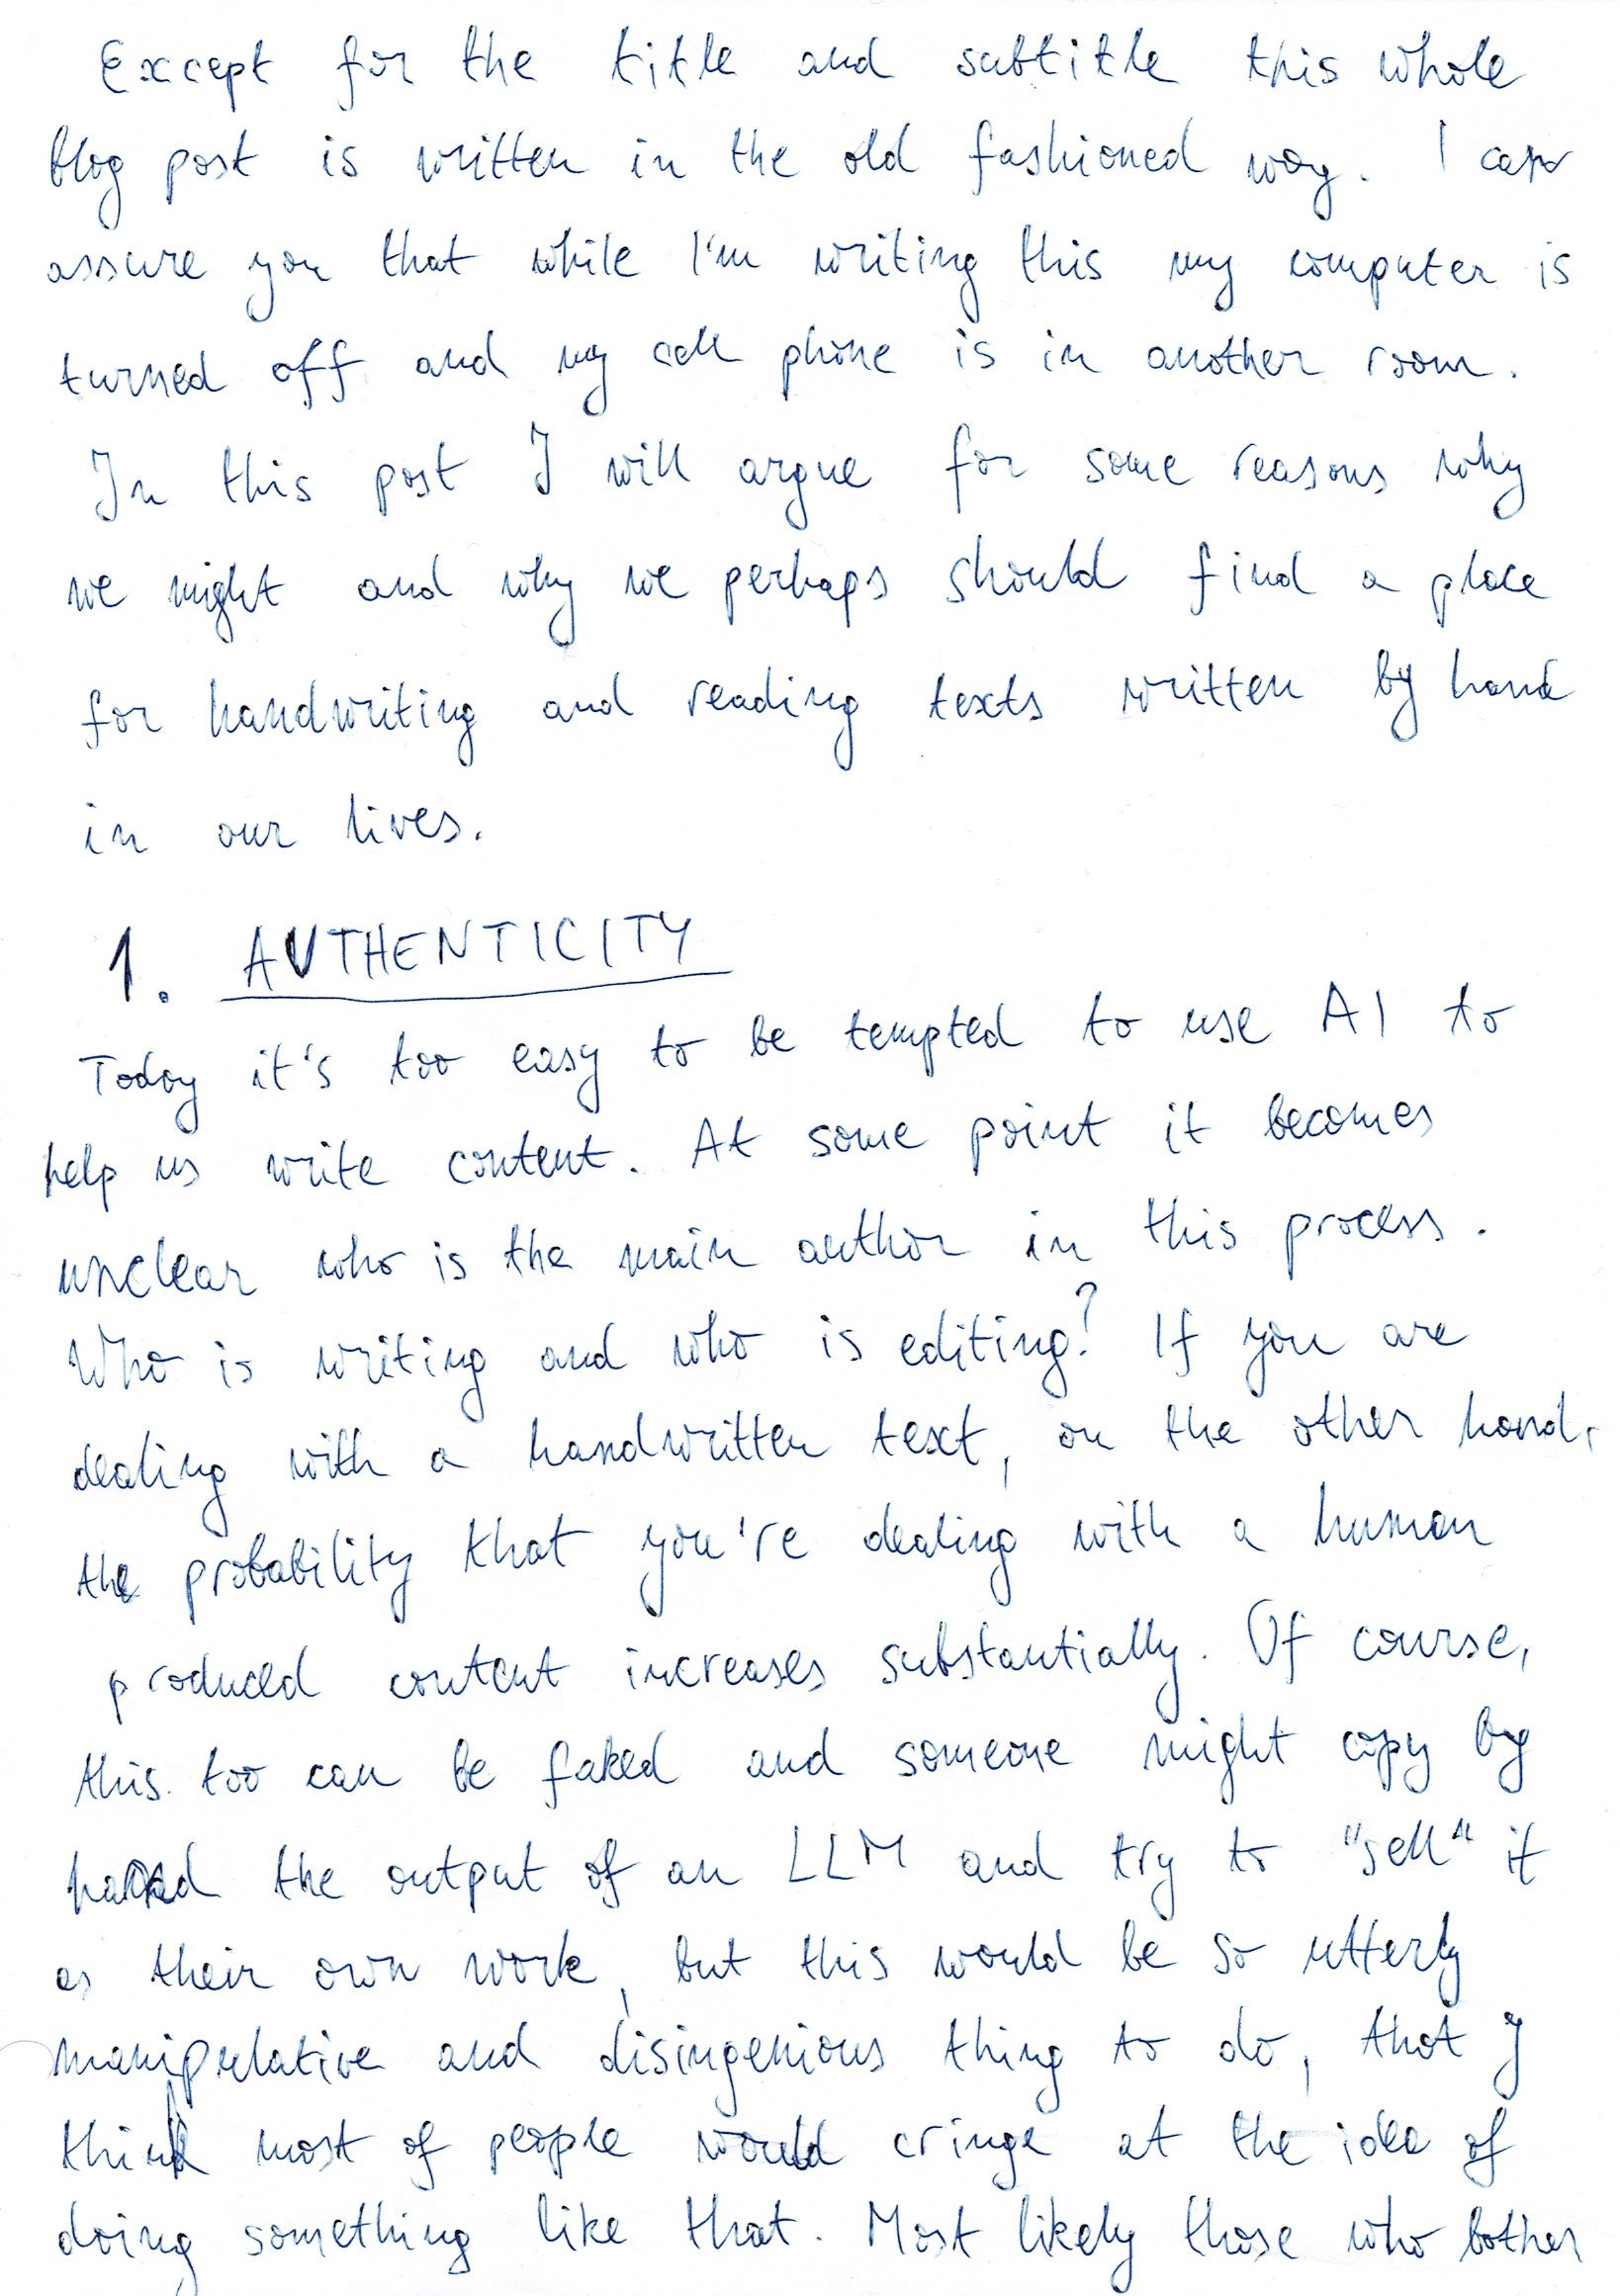 Except for the title and subtitle this whole
blog post is written in the old fashioned way. I can
assure you that while I'm writing this my computer is
turned off and my cell phone is in another room.
In this post I will argue for some reasons why
we might and why we perhaps should find a place
for handwriting and reading texts written by hand
in our lives.
1. AUTHENTICITY
Today it's too easy to be tempted to use AI to
help us write content. At some point it becomes
unclear who is the main author in this process.
Who is writing and who is editing? If you are
dealing with a handwritten text, on the other hand,
the probability that you're dealing with a human
produced content increases substantially. Of course,
this too can be faked and someone might copy by
hand the output of an LLM and try to "sell" it
as their own work, but this would be so utterly
manipulative and disingenious thing to do, that I
think most of people would cringe at the idea of
doing something like that. Most likely those who bother